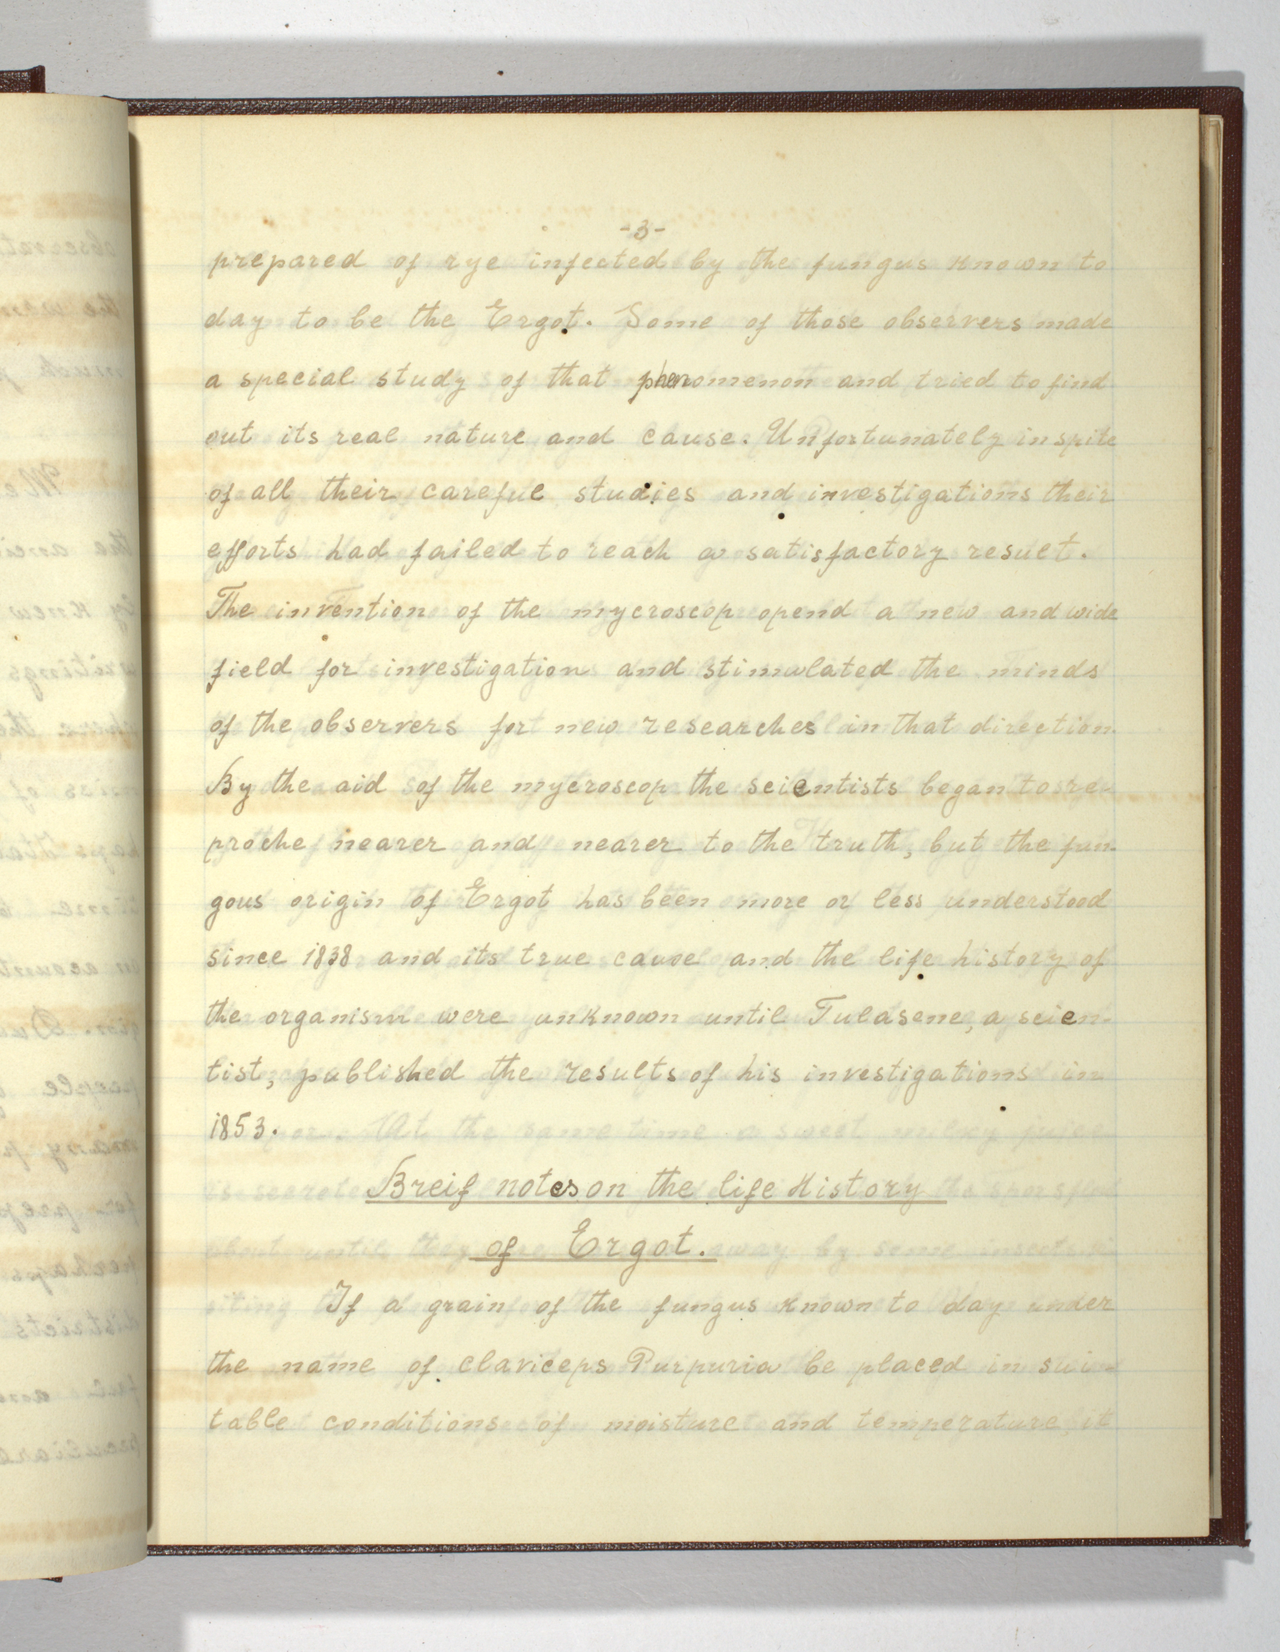 -3-
prepared of rye infected by the fungus known to
day to be the Ergot. Some of those observers made
a special study of that phenomenon and tried to find
out its real nature and cause. Unfortunately in spite
of all their careful studies and investigations their
efforts had failed to reach a satisfactory result.
The invention of the mycroscop opend a new and wide
field for investigation and stimulated the minds
of the observers for new researches in that direction.
By the aid of the mycroscop the scientists began to re-
proche nearer and nearer to the truth, but the fun-
gous origin of Ergot has been more or less understood
since 1838 and its true cause and the life history of
the organism were unknown until Tulasene, a scien-
tist, published the results of his investigations in
1853.
Breif notes on the life History
of Ergot.
If a grain of the fungus known to day under
the name of claviceps Purpuria be placed in sui-
table conditions of moisture and temperature it